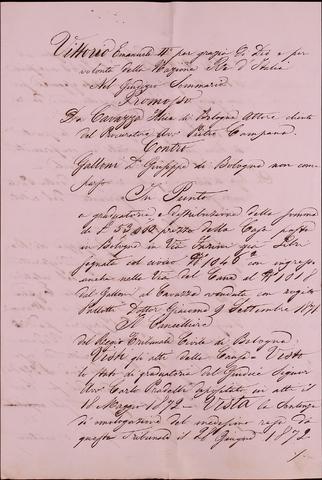 Vittorio Emanuele II per grazia di Dio e per
volontà della Nazione Re d'Italia
Nel Giudizio Sommario
Promosso
Da Cavazza di Bologna Attore cliente
del Procuratore Avv. Pietro Campana
Contro
Galloni Giuseppe di Bologna non com
parso
In Punto
a graduatoria e distribuzione della somma
di L. 53,000 prezzo della Casa posta
in Bologna in Via già Libri
segnata col civico N. 1046 con ingresso
anche nella Via del Cane al N. 1018
dal Galloni al Cavazza venduta con rogito
Dottor Giacomo 9 Settembre 1871
Il Cancelliere
del Regio Tribunale Civile di Bologna
Visti gli atti della Causa Visto
lo stato di graduatoria del Giudice Signor
Avv. Carlo depositato in atti il
18 Maggio 1872 - Vista la Sentenza
di omologazione del medesimo resa da
questo Tribunale il Giugno 1872